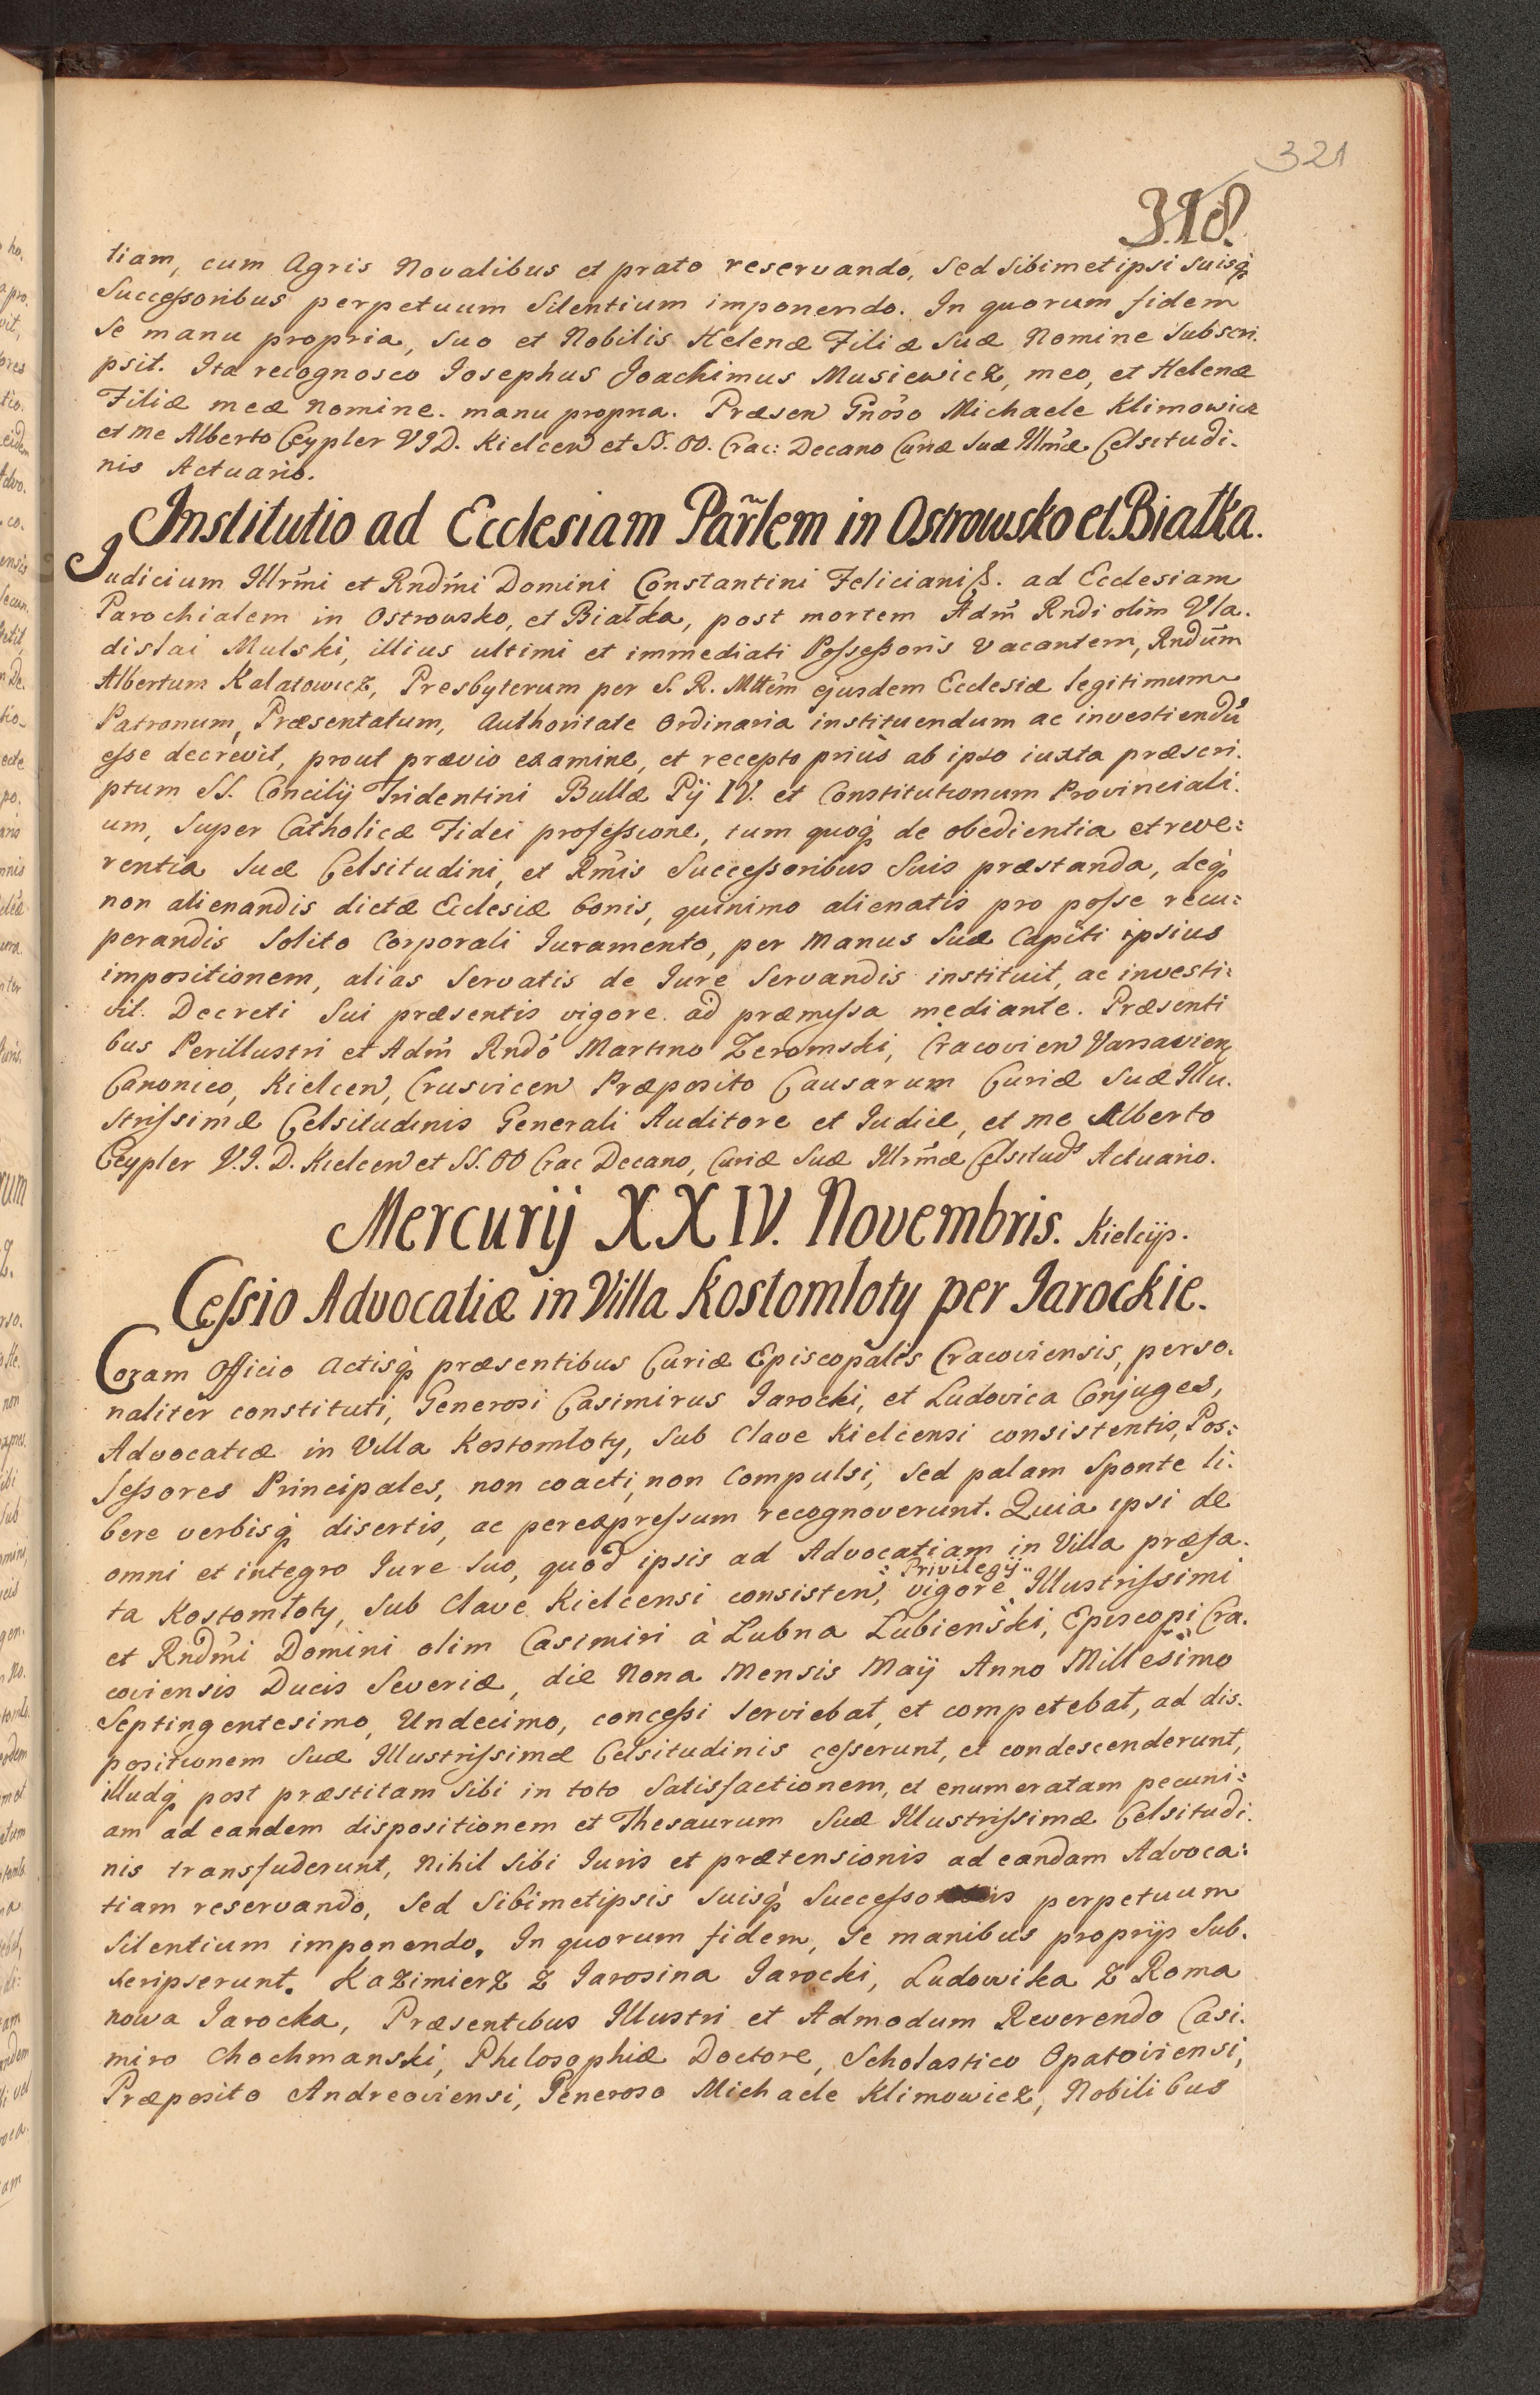 321
318.
tiam, cum Agris Novalibus et prato reservando, sed sibimetipsi suisq́
Succeſsoribus perpetuum Silentium imponendo. In quorum fidem
se manu propria, suo et Nobilis Helenæ Filiæ suæ Nomine subscri.
psit. Ita recognosco Iosephus Joachimus Musiewicz, meo, et Helenæ
Filiæ meæ nomine. manu propria. Præsen Gnoso Michaele Klimowicz
et me Alberto Ceypler V I D. Kielcen et SS. OO. Crac: Decano Curiæ suæ Illmæ Celsitudi.
nis Actuario.
Institutio ad Ecclesiam Par̃lem in Ostrowsko et Białka.
Judicium Illrm̃i et Rndm̃i Domini Constantini Feliciani ß. ad Ecclesiam
Parochialem in Ostrowsko, et Białka, post mortem Adm̃ Rndi olim Vla.
dislai Mulski, illius ultimi et immediati Poſseſsoris vacantem, Rndum̃
Albertum Kalatowicz, Presbyterum per S. R. Mttem̃ ejusdem Ecclesiæ legitimum
Patronum, Præsentatum, Authoritate ordinaria instituendum ac investiendũ
eſse decrevit, prout prævio examine, et recepto prius ab ipso iuxta præscri.
ptum SS. Concilij Tridentini Bullæ Pij IV. et Constitutionum Provinciali.
um, super Catholicæ Fidei profeſsione, tum quoq́ de obedientia et reve:
rentia suæ Celsitudini, et Rm̃is Succeſsoribus suis præstanda, deq́
non alienandis dictæ Ecclesiæ bonis, quinimo alienatis pro poſse recu:
perandis solito corporali Iuramento, per Manus suæ capiti ipsius
impositionem, alias servatis de Iure servandis instituit, ac investi:
vit. Decreti sui præsentis vigore. ad præmiſsa mediante. Præsenti
bus Perillustri et Adm̃ Rndo Martino Zeromski, Cracovien Varsavien
Canonico, Kielcen, Crusvicen Præposito Causarum Curiæ suæ Illu.
striſsimæ Celsitudinis Generali Auditore et Iudice, et me Alberto
Ceypler V. I. D. Kielcen et SS. OO Crac Decano, Curiæ suæ Illrm̃æ Celsituds Actuario.
Mercurij XXIV. Novembris. Kielcijs.
Ceſsio Advocatiæ in Villa Kostomloty per Iarockie.
Coram Officio Actisq́ præsentibus Curiæ Episcopalis Cracoviensis, perso.
naliter constituti, Generosi Casimirus Iarocki, et Ludovica Conjuges,
Advocatiæ in Villa Kostomloty, sub Clave Kielcensi consistentis, Pos:
seſsores Principales, non coacti, non compulsi, sed palam sponte li:
bere verbisq́ disertis, ac perexpreſsum recognoverunt. Quia ipsi de
omni et integro Iure suo, quod ipsis ad Advocatiam in Villa præfa.
: Privilegij :
ta Kostomłoty, sub Clave Kielcensi consisten, vigore Illustriſsimi
et Rndm̃i Domini olim Casimiri à Lubna Lubieński, Episcopi Cra.
coviensis Ducis Severiæ, die Nona Mensis Maij Anno Millesimo
Septingentesimo, Undecimo, conceſsi serviebat, et competebat, ad dis.
positionem suæ Illustriſsimæ Celsitudinis ceſserunt, et condescenderunt,
illudq́ post præstitam sibi in toto satisfactionem, et enumeratam pecuni:
am ad eandem dispositionem et Thesaurum suæ Illustriſsimæ Celsitudi.
nis transfuderunt, nihil sibi Iuris et prætensionis ad eandam Advoca:
tiam reservando, sed sibimetipsis suisq́ Succeſso is perpetuum
silentium imponendo. In quorum fidem, se manibus proprijs sub.
scripserunt. Kazimierz z Iarosina Iarocki, Ludowika z Roma
nowa Iarocka, Præsentibus Illustri et Admodum Reverendo Casi.
miro Chochmanski, Philosophiæ Doctore, Scholastico Opatoviensi,
Præposito Andreoviensi, Generoso Michaele Klimowicz, Nobilibus